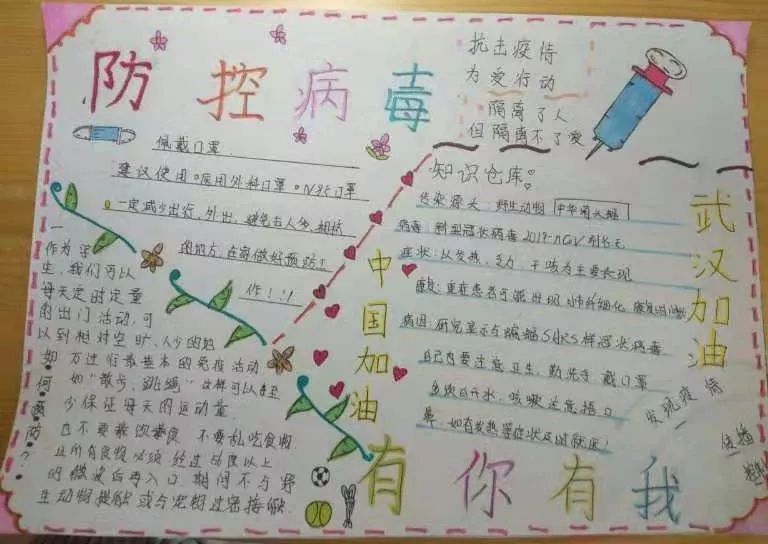 防控病毒
抗击疫情
为爱行动
隔离了人
但隔离不了爱
佩戴口罩
建议使用 医用外科口罩 N95口罩
一定减少出行,外出,避免去人多,拥挤
的地方,在家做好预防工
作!!!
一
作为学
生,我们可以
每天定时定量
的出门活动,可
以到相对空旷、人少的地
方进行最基本的免疫活动
如“散步、跳绳”这样可以
少保证每天的运动量.
也不要暴饮暴食 不要乱吃食物
且所有食物必须 经过 以上
的 后再入口. 期间不与野
生动物接触 或与宠物过密接触.
如何预防?
知识仓库
传染源头:野生动物 中华菊头蝠
病毒:新型冠状病毒2019-nCoV
症状:以发热、乏力、干咳为主要表现
重症患者可能出现
病因:研究显示与蝙蝠SARS样冠状病毒
自己内要注意卫生,勤洗手 戴口罩
多饮白开水,咳嗽注意捂口
鼻.如有发热等症状及时就医!
中国加油
武汉加油
发现疫情
有你有我